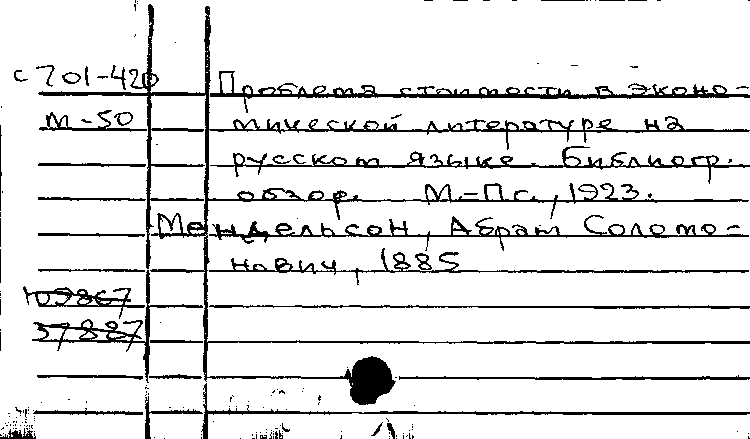 с 701-420 Проблема стоимости в эконо-
м-50 мической литературе на
русском языке. Библиогр.
обзор. М.-Пг., 1923.
Мендельсон, Абрам Соломо-
нович, 1885
109867
37887